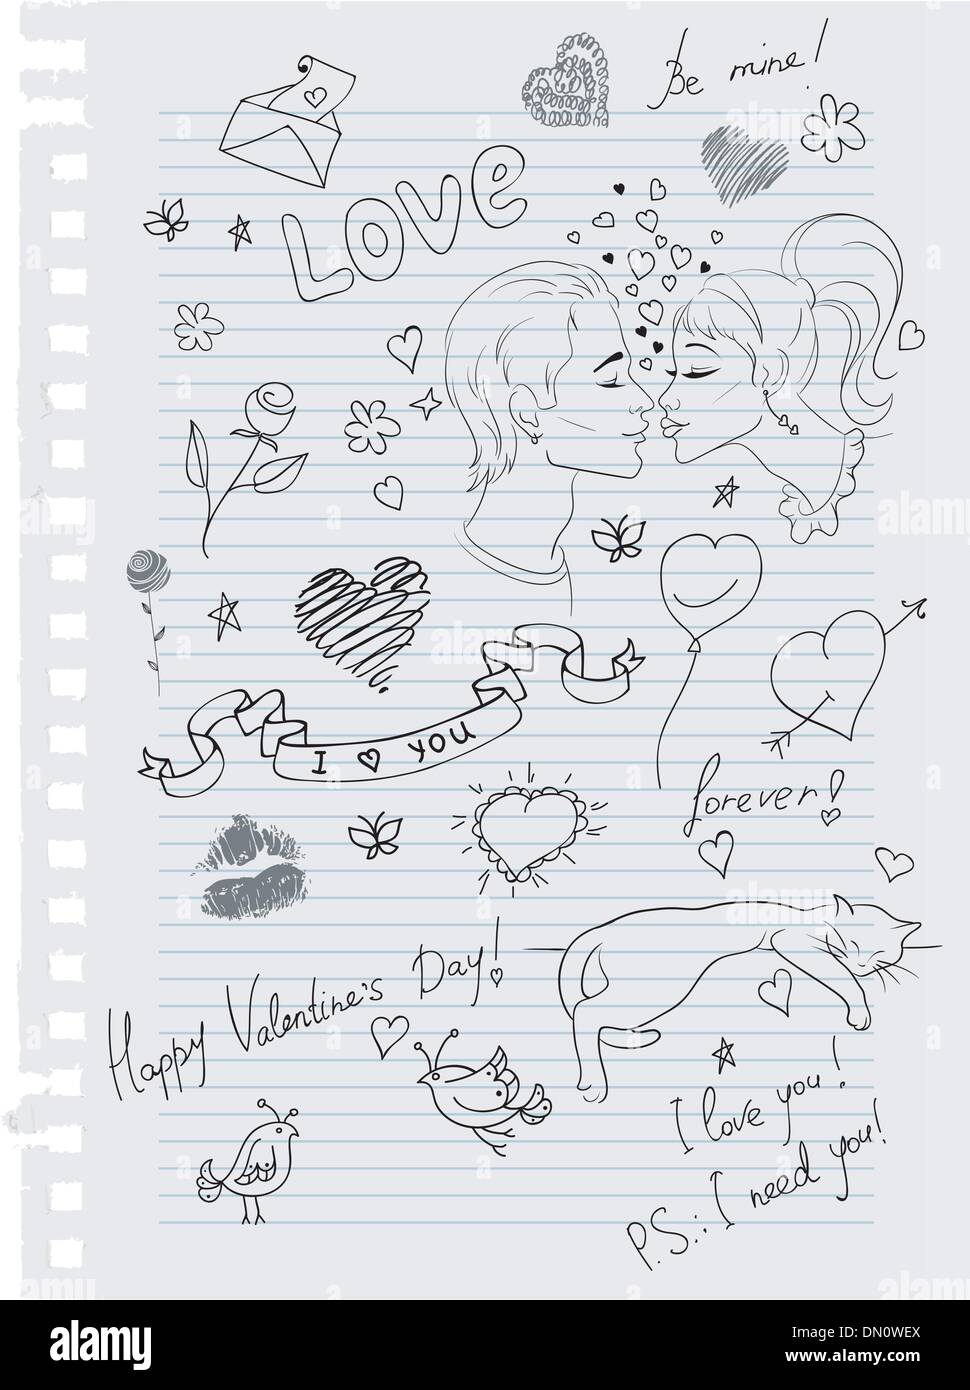 Be mine!
LOVE
I ♥ YOU
forever!
Happy Valentine's Day!
I love you!
P.S.: I need you!
alamy
Image ID: DN0WEX
www.alamy.com